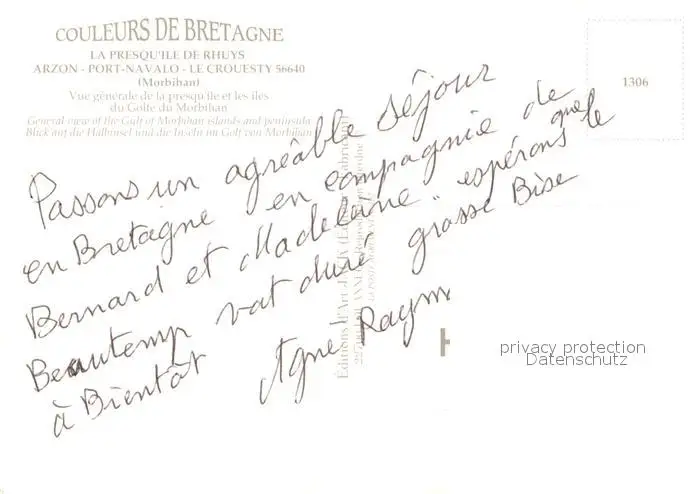 COULEURS DE BRETAGNE
LA PRESQU'ILE DE RHUYS
ARZON - PORT-NAVALO - LE CROUESTY 56640
(Morbihan)
Vue générale de la presqu'île et les îles
du Golfe du Morbihan
General view of the Gulf of Morbihan islands and peninsula
Blick auf die Halbinsel und die Inseln im Golf von Morbihan
1306
Passons un agréable séjour
en Bretagne en compagnie de
Bernard et Madeleine espérons que le
Beautemp vat duré grasse Bise
à Bientôt Agnè Raym
Editions d'Art
privacy protection
Datenschutz